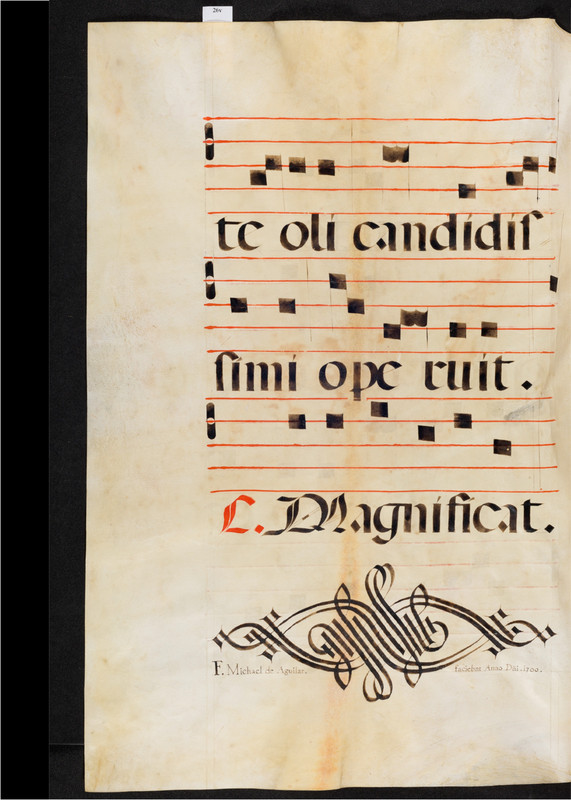 26v
te oli candidis
simi ope ruit.
C. Magnificat.
F. Michael de Aguilar. faciebat Anno Dñi. 1700.